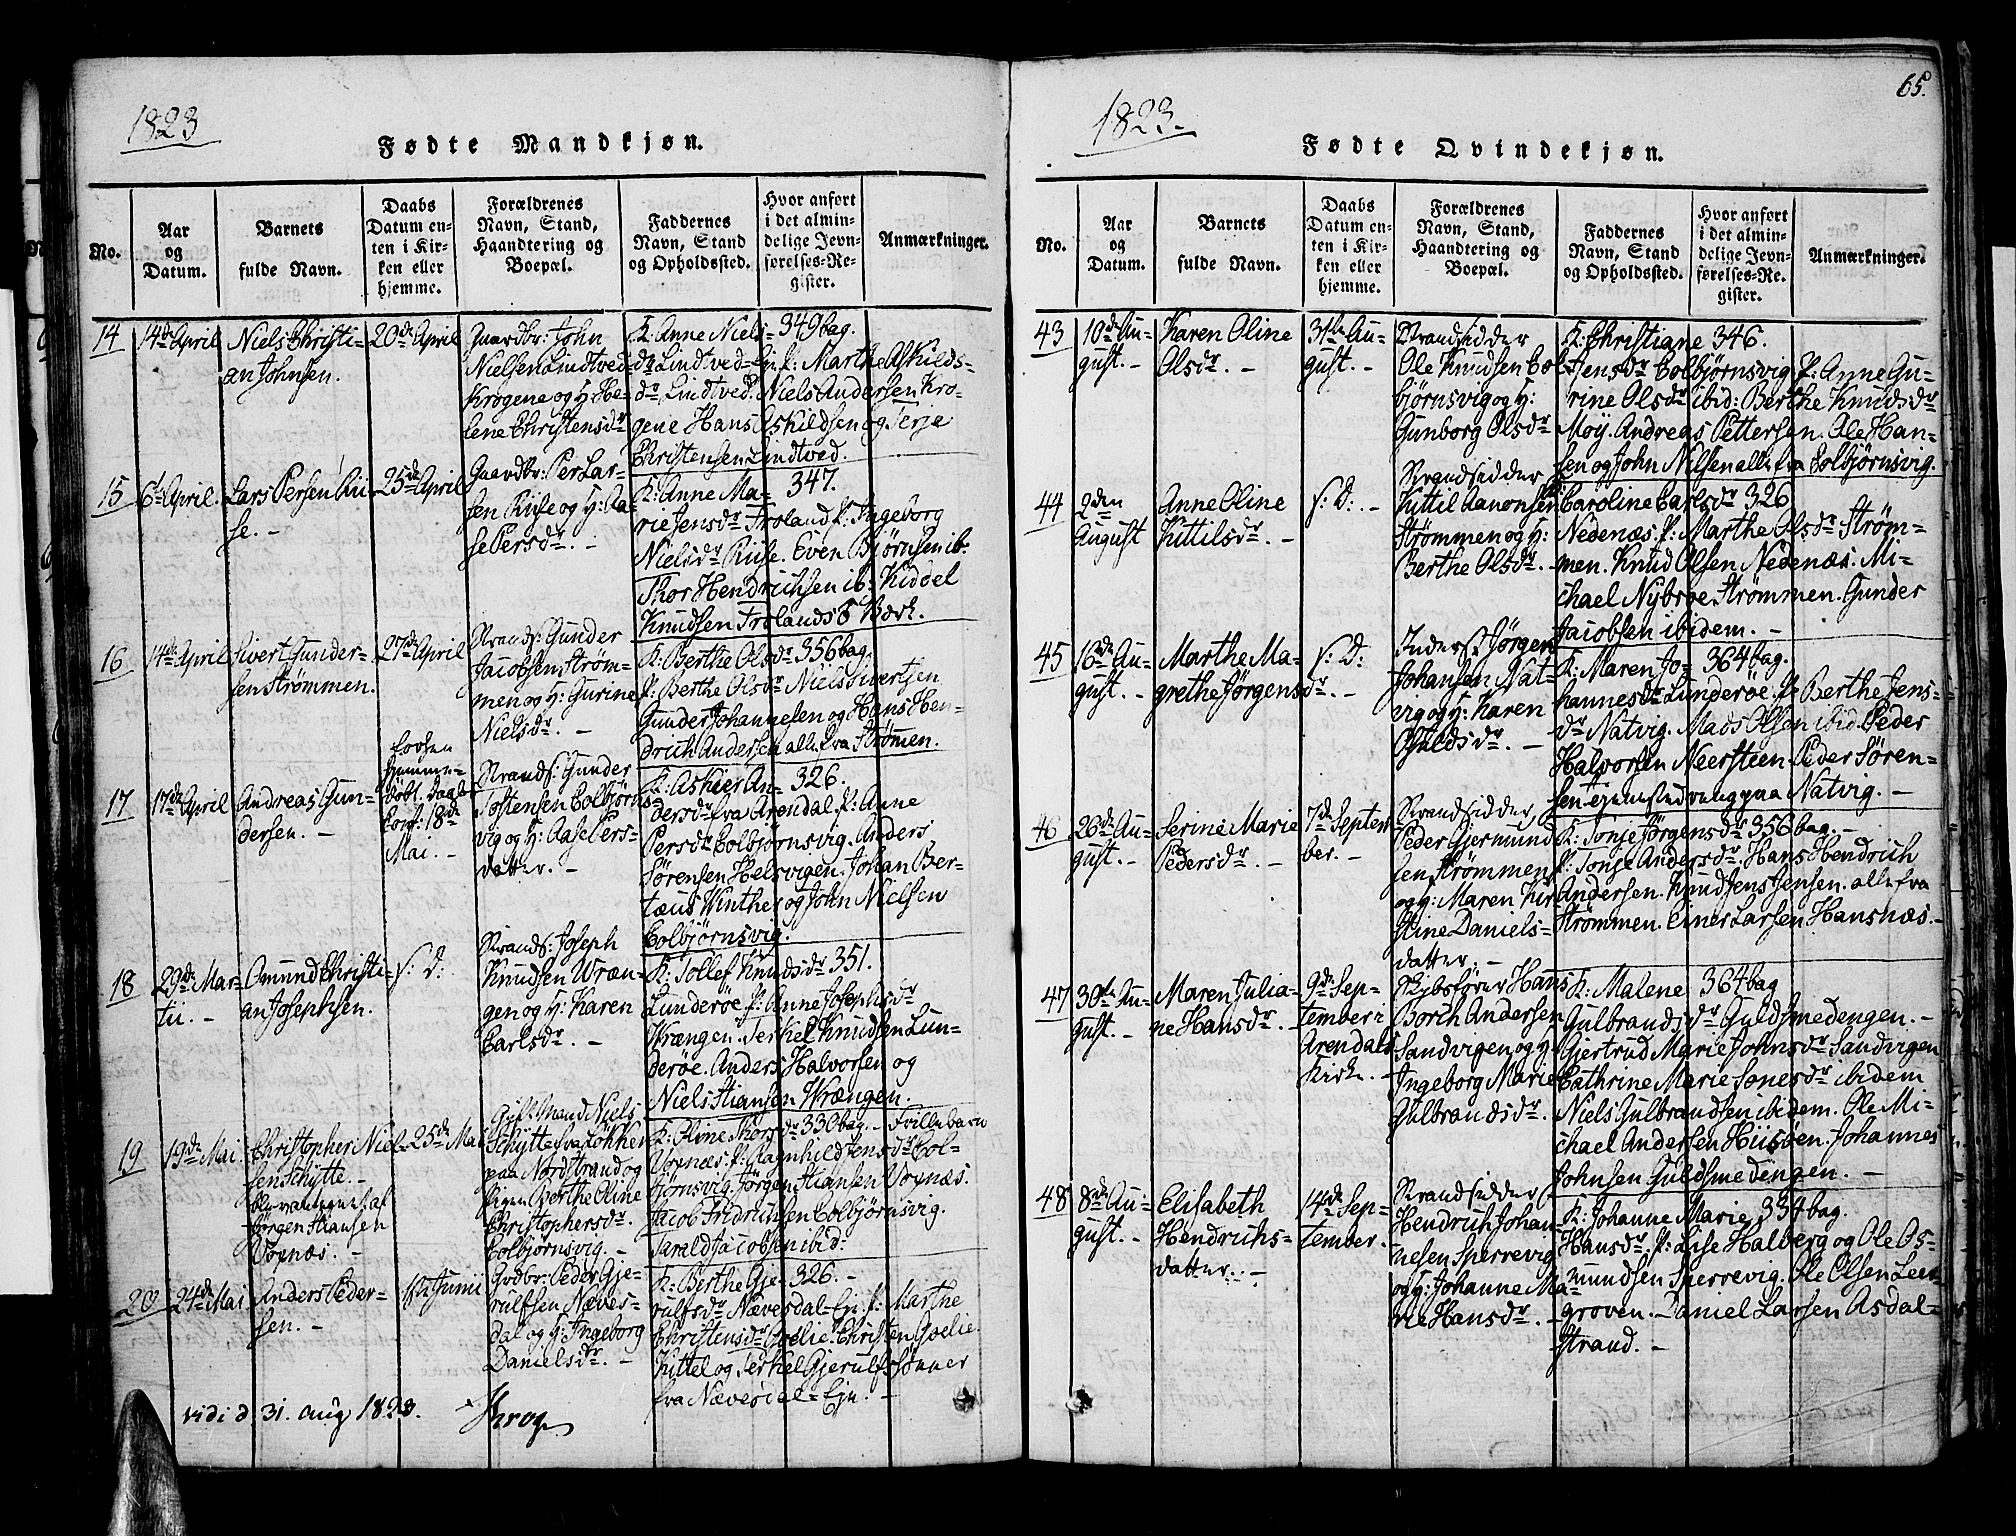 1823
Fødte Mandkjøn.
No.
Aar
og
Datum.
Barnets
fulde Navn.
Daabs
Datum en-
ten i Kir-
ken eller
hjemme.
Forældrenes
Navn, Stand,
Haandtering og
Boepæl.
Faddernes
Navn, Stand
og Opholdssted.
Hvor anført
i det almin-
delige Jevn-
førelses-Re-
gister.
Anmærkninger.
14
14de April
Niels Christi-
an Johnsen.
20de April
Gaardbr: John
Nielsen Lindtved
Krogene og H: He-
lene Christensdr
F: Anne Niels- 349 bag.
dr Lindtved-Ejn. P: Marthe Askilds-
dr Lindtved. Niels Andersen Kro-
gene Hans Askildsen og Terje
Christensen Lindtved.
15
6te April.
Lars Persen Rii-
se. -
25de April
Gaardbr: Per Lar-
sen Riise og H: Aa-
se Persdr. -
F: Anne Ma- 347.
rie Jensdr Froland P: Ingeborg
Nielsdr Riise. Even Bjørnsen ib:
Thor Hendrichsen ib: Kiddel
Knudsen Frolands Værk.
16
14de April
Sivert Gunder-
sen Strømmen.
27de April
Strands: Gunder
Jacobsen Strøm-
men og H: Gurine
Nielsdr. -
F: Berthe Olsdr 356 bag.
P: Berthe Olsdr Niels Sivertsen
Gunder Johannesen og Hans Hen-
drich Andersen alle fra Strømen.
17
17de April
Andreas Gun-
dersen. -
hjemme-
døbt. Daabs
Conf: 18de
Mai. -
Strands: Gunder
Tostensen Colbjørns-
vig og H: Aase Pers-
datter. -
F: Askier An- 326.
dersdr fra Arendal P: Anne
Persdr Colbjørnsvig. Anders
Sørensen Helsvigen. Johan Ber-
taus Winther og John Nielsen
Colbjørnsvig.
18
29de Mar-
tii. -
Omund Christi-
an Josephsen.
s: D:
Strands: Joseph
Knudsen Wræn-
gen og H: Karen
Carlsdr. -
F: Tollef Knudsdr 351.
Lunderøe P: Anne Josephsdr
Wrængen. Terkel Knudsen Lun-
derøe. Anders Halvorsen og
Niels Stiansen Wrængen.
19
19de Mai.
Christopher Niel-
sen Schytte. -
Jørgen Stiansen
Vognæs. -
25de Mai
Gift Mand Niels
Schytte fra Løkken
paa Nordstrand og
Pigen Berthe Oline
Christophersdr.
Colbjørnsvig. -
F: Oline Thorsdr 330 bag. -
Vognæs. P: Ragnhild Jensdr Col-
bjørnsvig. Jørgen Stiansen Vognæs.
Jacob Fridrichsen Colbjørnsvig.
Tarald Jacobsen ibid:
Frillebarn
20
24de Mai
Anders Peder-
sen. -
1ste Junii
Grdbr: Peder Gje-
rulfsen Næves-
dal og H: Ingeborg
Danielsdr. -
F: Berthe Gje- 326. -
rulfsdr Nævesdal-Ejn. P: Marthe
Christensdr Goelie. Christen Goelie.
Kittel og Terkel Gjerulfssønner
fra Nævesdal-Ejn. -
vidi d 31. Aug 1823.
Krog
65.
1823.
Fødte Qvindekjøn.
No.
Aar
og
Datum.
Barnets
fulde Navn.
Daabs
Datum en-
ten i Kir-
ken eller
hjemme.
Forældrenes
Navn, Stand,
Haandtering og
Boepæl.
Faddernes
Navn, Stand
og Opholdssted.
Hvor anført
i det almin-
delige Jevn-
førelses-Re-
gister.
Anmærkninger.
43
10de Au-
gust. -
Karen Oline
Olsdr. -
31te Au-
gust. -
Strandsidder
Ole Knudsen Col-
bjørnsvig og H:
Gunborg Olsdr
F: Christiane 346.
Jensdr Colbjørnsvig P: Anne Gu-
rine Olsdr ibid: Berthe Knudsdr
Moy. Andreas Pettersen. Ole Han-
sen og John Nilsen alle fra Colbjørnsvig.
44
2den
August
Anne Oline
Kittilsdr. -
s: D: -
Strandsidder
Kittil Aanonsen
Strømmen og H:
Berthe Olsdr. -
Caroline Carlsdr 326
Nedenæs. P: Marthe Olsdr Strøm-
men. Knud Olsen Nedenæs. Mi-
chael Nybroe Strømmen. Gunder
Jacobsen ibidem. -
45
16de Au-
gust. -
Marthe Ma-
grethe Jørgensdr. -
s: D:
Inders: Jørgen
Johansen Nat-
vig og H: Karen
Osuldsdr. -
F: Maren Jo- 364 bag.
hannesdr Lunderøe. P: Berthe Jens-
dr Natvig. Mads Olsen ibid. Peder
Halvorsen Neersteen. Peder Søren-
sen ejensted veng paa Natvig. -
46
26de Au-
gust. -
Serine Marie
Pedersdr. -
7de Septem-
ber. -
Strandsidder
Peder Gjermund-
sen Strømmen
og H: Maren Kir-
stine Daniels-
datter. -
F: Tonje Jørgensdr 356 bag. -
P: Tonje Andersdr. Hans Hendrich
Andersen. Knud Jens Jensen. alle fra
Strømmen. Einer Larsen Hansnæs. -
47
30te Au-
gust. -
Maren Julia-
ne Hansdr. -
9de Sep-
tember i
Arendals
Kirke. -
Skibsfører Hans
Borch Andersen
Sandvigen og H:
Ingeborg Marie
Gulbrandsdr. -
F: Malene 364 bag
Gulbrandsdr Guldsmedengen. -
Gjertrud Marie Johnsdr Sandvigen
Cathrine Marie Sonesdr ibidem
Niels Gulbrandsen ibidem. Ole Mi-
chael Andersen Hiisøen. Johannes
Johnsen Guldsmedengen. -
48
8de Au-
gust. -
Elisabeth
Hendrichs-
datter. -
14de Sep-
tember. -
Strandsidder
Hendrich Johan-
nesen Sperrevig
og H: Johanne Ma-
rie Hansdr. -
F: Johanne Marie 334 bag.
Hansdr. P: Lise Halberg og Ole Os-
mundsen Sperrevig. Ole Olsen Leer-
groven. - Daniel Larsen Asdal-
strand. -